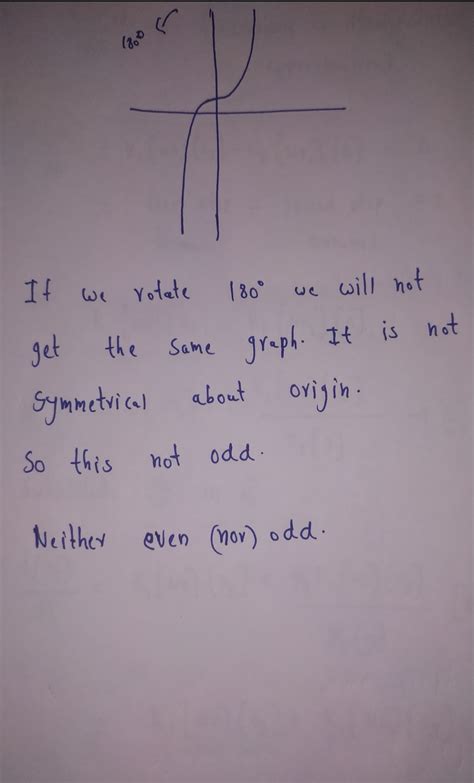 180°
If we rotate 180° we will not
get the same graph. It is not
symmetrical about origin.
So this not odd.
Neither even (nor) odd.